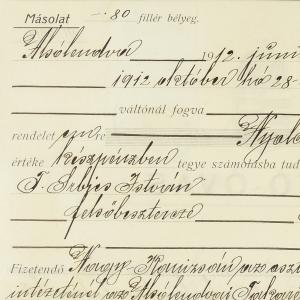 Másolat —.80 fillér bélyeg.
Alsólendva 1912. juni
1912 október hó 28-
váltónál fogva
rendelet em re Nyolc
értéke készpénzben tegye számolásba tud
T. Srbjes István
felsőbesztercze
Fizetendő Nagy-Kanizsán az oszt
intézeténél az Alsólendvai Takar